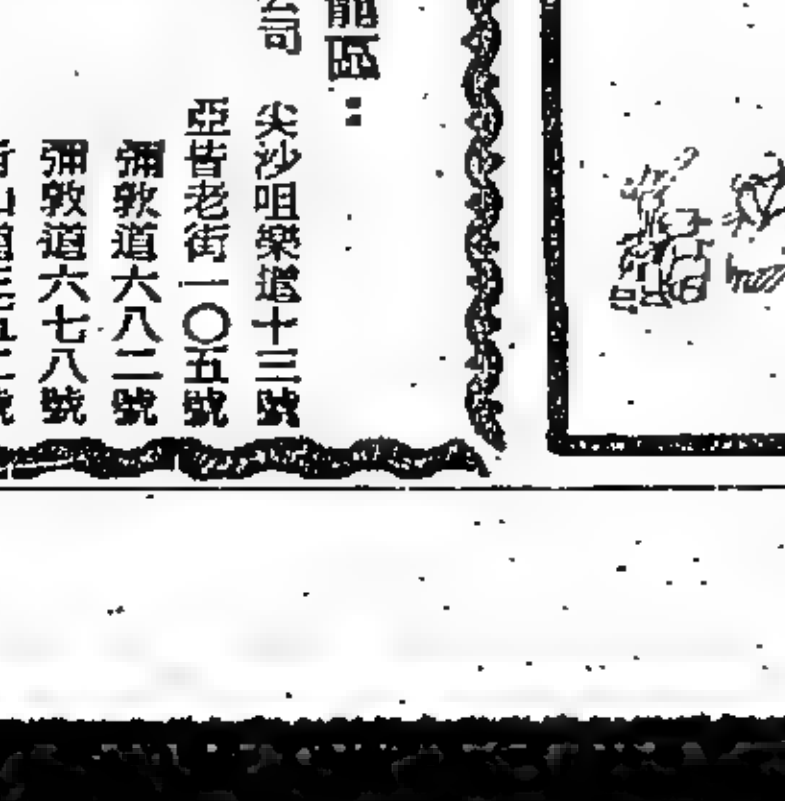 龍區：
公司 尖沙咀樂道十三號
亞皆老街一〇五號
彌敦道六八二號
彌敦道六七八號